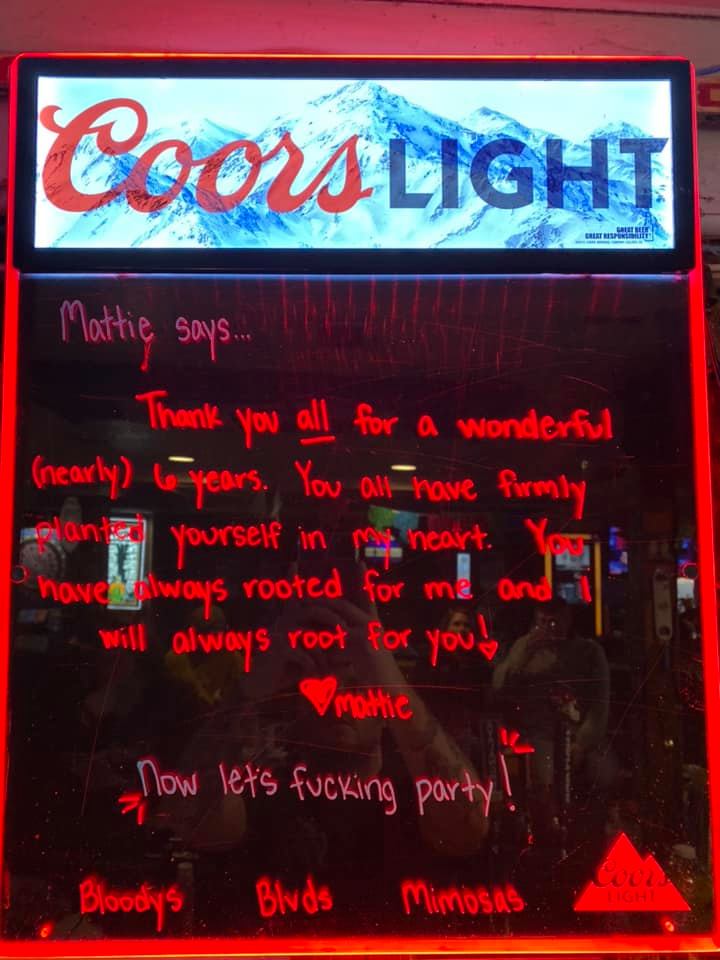 Coors LIGHT
GREAT BEER
GREAT RESPONSIBILITY
Mattie says...
Thank you all for a wonderful
(nearly) 6 years. You all have firmly
planted yourself in my heart. You
have always rooted for me and I
will always root for you!
mattie
Now let's fucking party!
Bloodys Blvds Mimosas
Coors
LIGHT